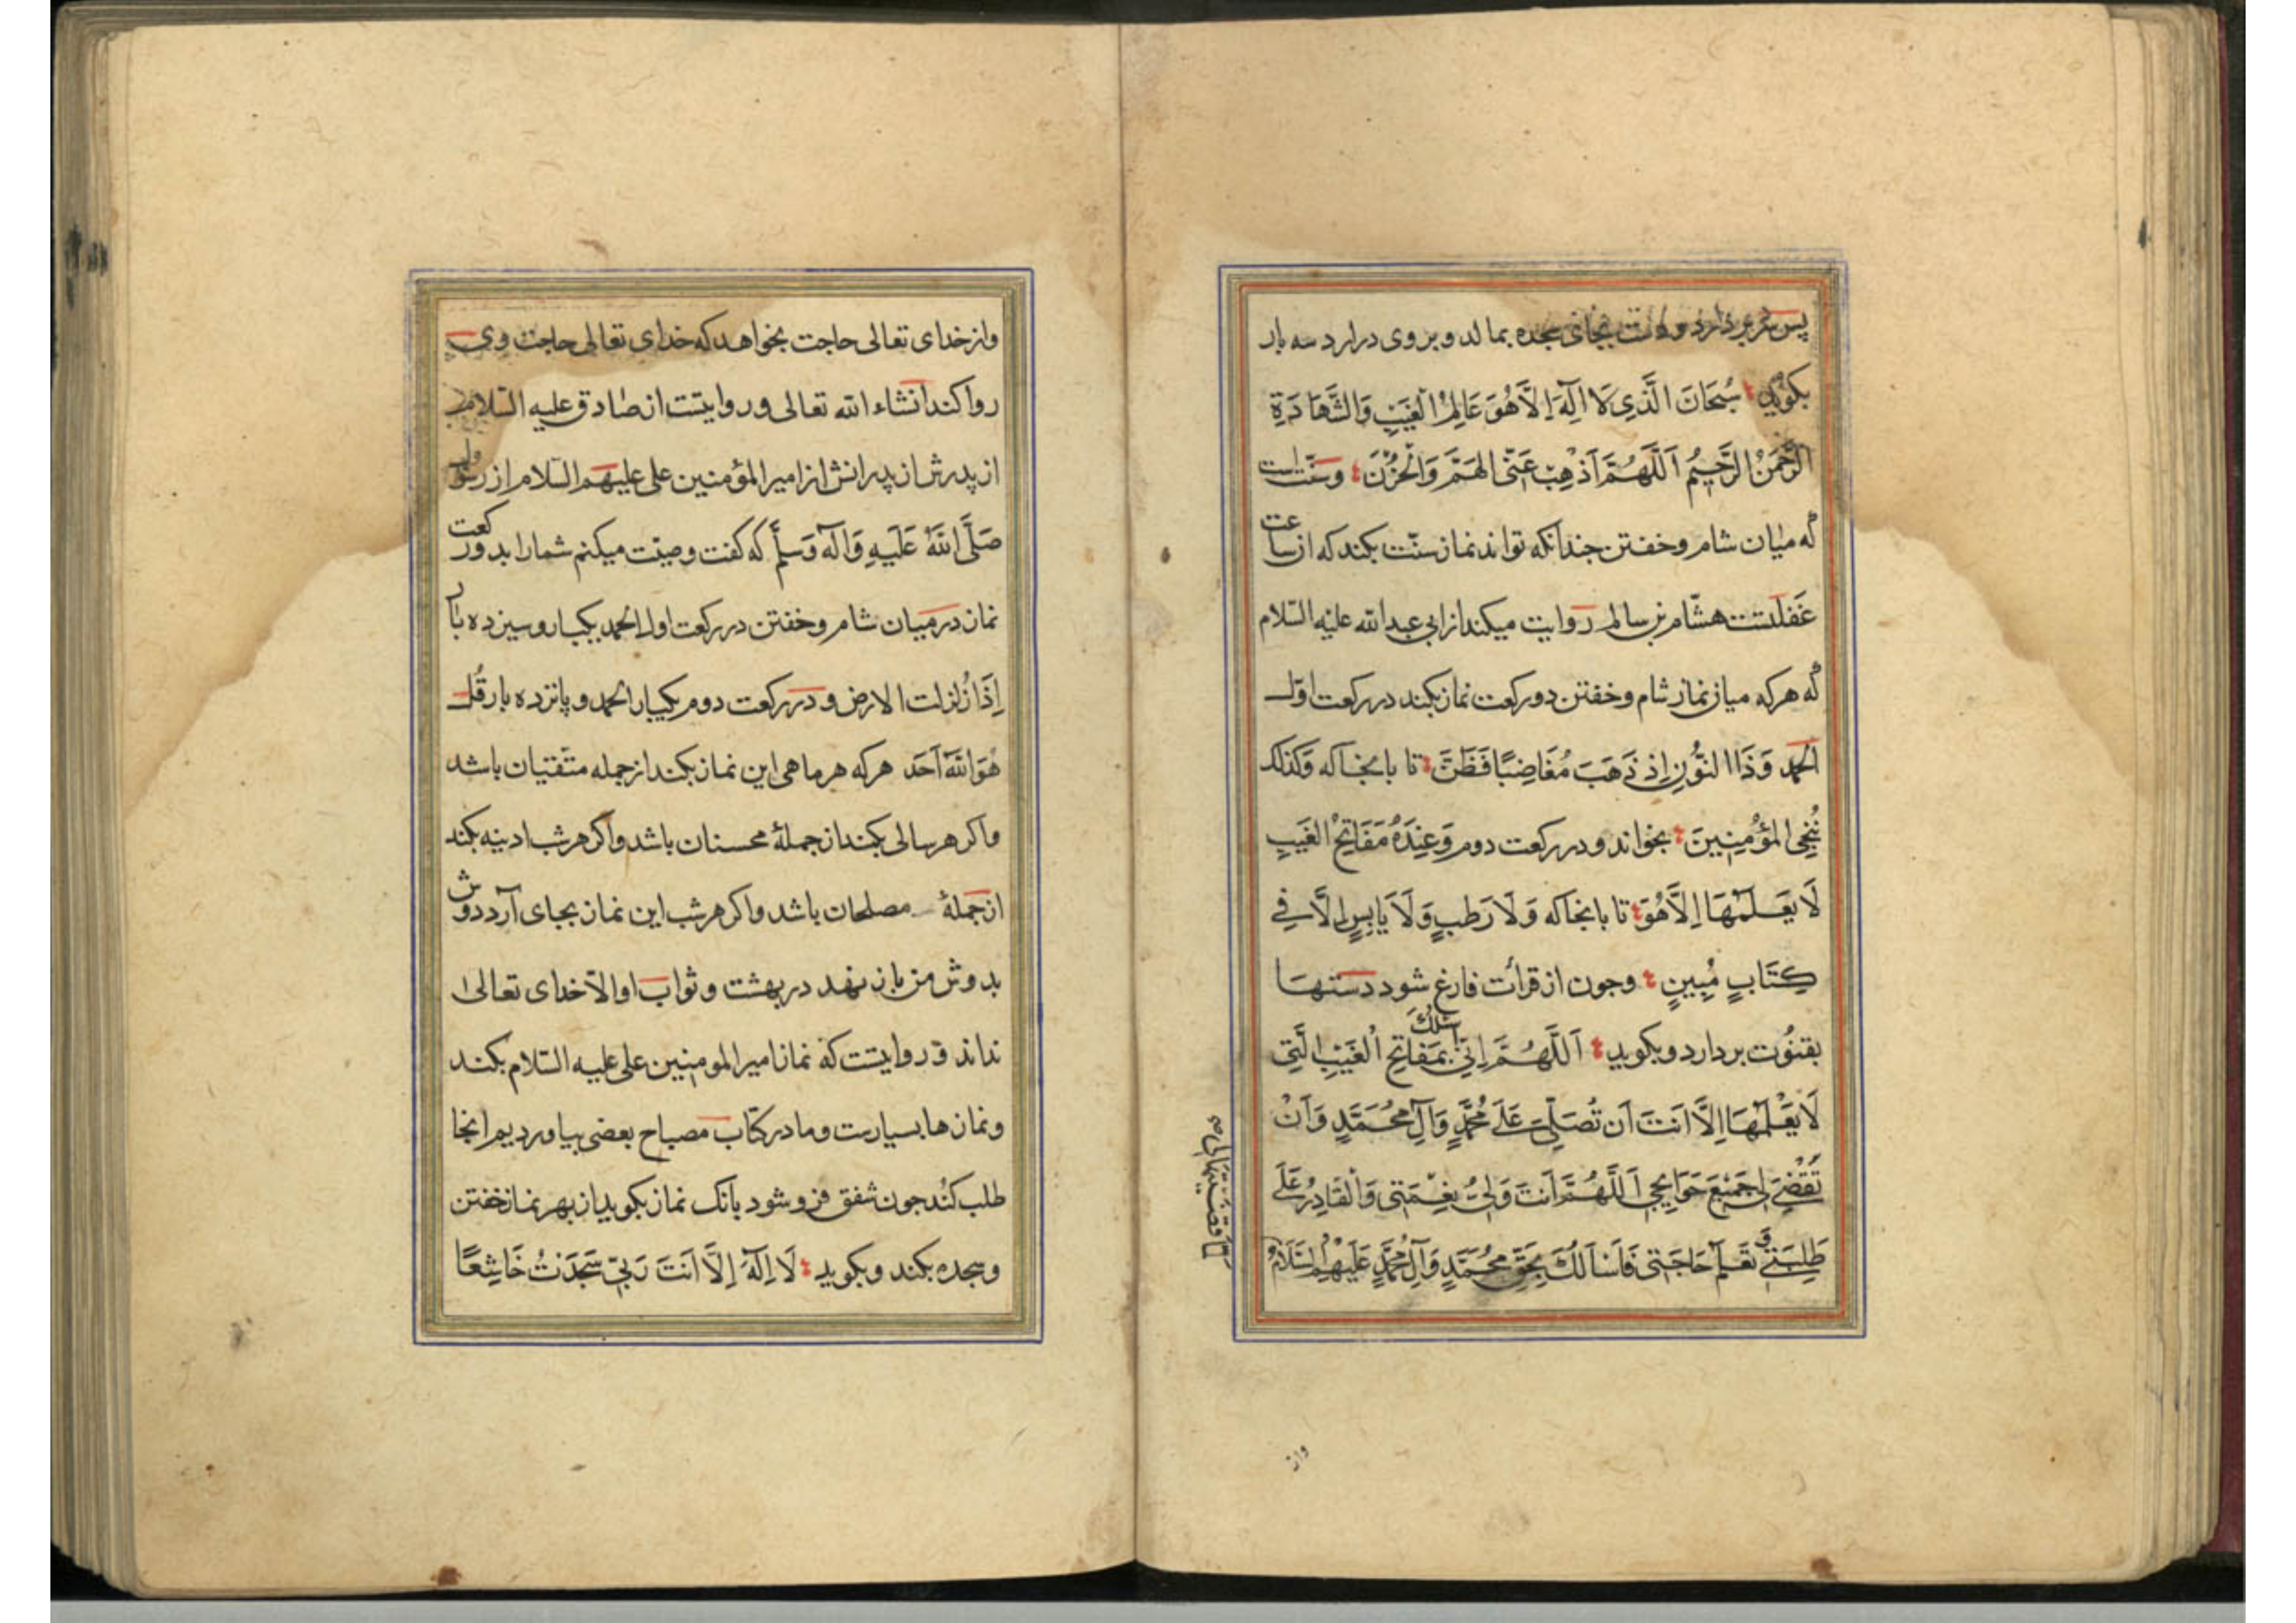 پس سر بردارد و دست بجای سجده بمالد و بر روی درارد سه بار
بکوید سُبحَانَ الَّذِی لَا اِلَهَ اِلَّا هُوَ عَالِمُ الْغَیبِ وَالشَّهَادَةِ
الرَّحمَنُ الرَّحِیمُ اَللَّهُمَّ اَذْهِبْ عَنّی الهَمَّ وَالْحُزْنَ وسنّت است
که میان شام وخفتن جندانکه تواند نماز سنّت بکند که از ساعت
غَفلَتست هشّام بن سالم روایت میکند از ابی عبد الله علیه السّلام
که هرکه میان نماز شام وخفتن دو رکعت نماز بکند در رکعت اوّل
الحمد وَذَا النُّونِ اِذ ذَهَبَ مُغَاضِبًا فَظَنَّ تا بانجا که وَکَذلک
نُنْجِی المُؤمِنِینَ بخواند و در رکعت دوم وَعِنْدَهُ مَفَاتِحُ الغَیبِ
لَا یَعلَمُهَا اِلَّا هُوَ تا بانجا که وَلَا رَطبٍ وَلَا یَابِسٍ اِلَّا فِی
کِتَابٍ مُبِینٍ وجون از قرائت فارغ شود دستها
بقنُوت بردارد و بکوید اَللَّهُمَّ اِنّی اسئلُکَ بمَفَاتِحِ الْغَیبِ الَّتِی
لَا یَعْلَمُهَا اِلَّا اَنتَ اَن تُصَلّیَ عَلَی مُحَمَّدٍ وَآلِ مُحَمَّدٍ وَاَنْ
تَقْضِیَ لِی جَمِیْعَ حَوَایِجِی اَللَّهُمَّ اَنتَ وَلِیُّ نِعْمَتِی وَالْقَادِرُ عَلَی
طَلِبَتِی وَ تَعلَمُ حَاجَتِی فَاَسْاَلُکَ بِحَقِّ مُحَمَّدٍ وَآلِ مُحَمَّدٍ عَلَیْهِمُ السَّلَامُ
لما قضیتها لی
واز
واز خدای تعالی حاجت بخواهد که خدای تعالی حاجت وی
روا کند انشاء الله تعالی و روایتست از صادق علیه السّلام
از پدرش از پدرانش از امیر المؤمنین علی علیهم السّلام از رسول
صَلَّی اللهُ عَلَیهِ وَآلِه وَسلّم که کفت وصیّت میکنم شما را بدو رکعت
نماز در میان شام وخفتن در رکعت اول الحمد یکبار و سیزده بار
اِذَا زُلزلت الارض و در رکعت دوم یکبار الحمد و پانزده بار قُل
هُوَ اللهُ اَحَد هرکه هر ماهی این نماز بکند از جمله متّقیان باشد
واکر هر سالی بکند از جملهٔ محسنان باشد واکر هر شب ادینه بکند
از جملهٔ مصلحان باشد واکر هر شب این نماز بجای آرد دوش
بدوش من باز نهد در بهشت وثواب او الّا خدای تعالی
نداند و روایتست که نماز امیر المومنین علی علیه السّلام بکند
ونمازها بسیارست وما در کتاب مصباح بعضی بیاوردیم انجا
طلب کُند جون شفق فرو شود بانک نماز بکوید از بهر نماز خفتن
وسجده بکند وبکوید لَا اِلَهَ اِلَّا اَنتَ رَبّی سَجَدْتُ خَاشِعًا